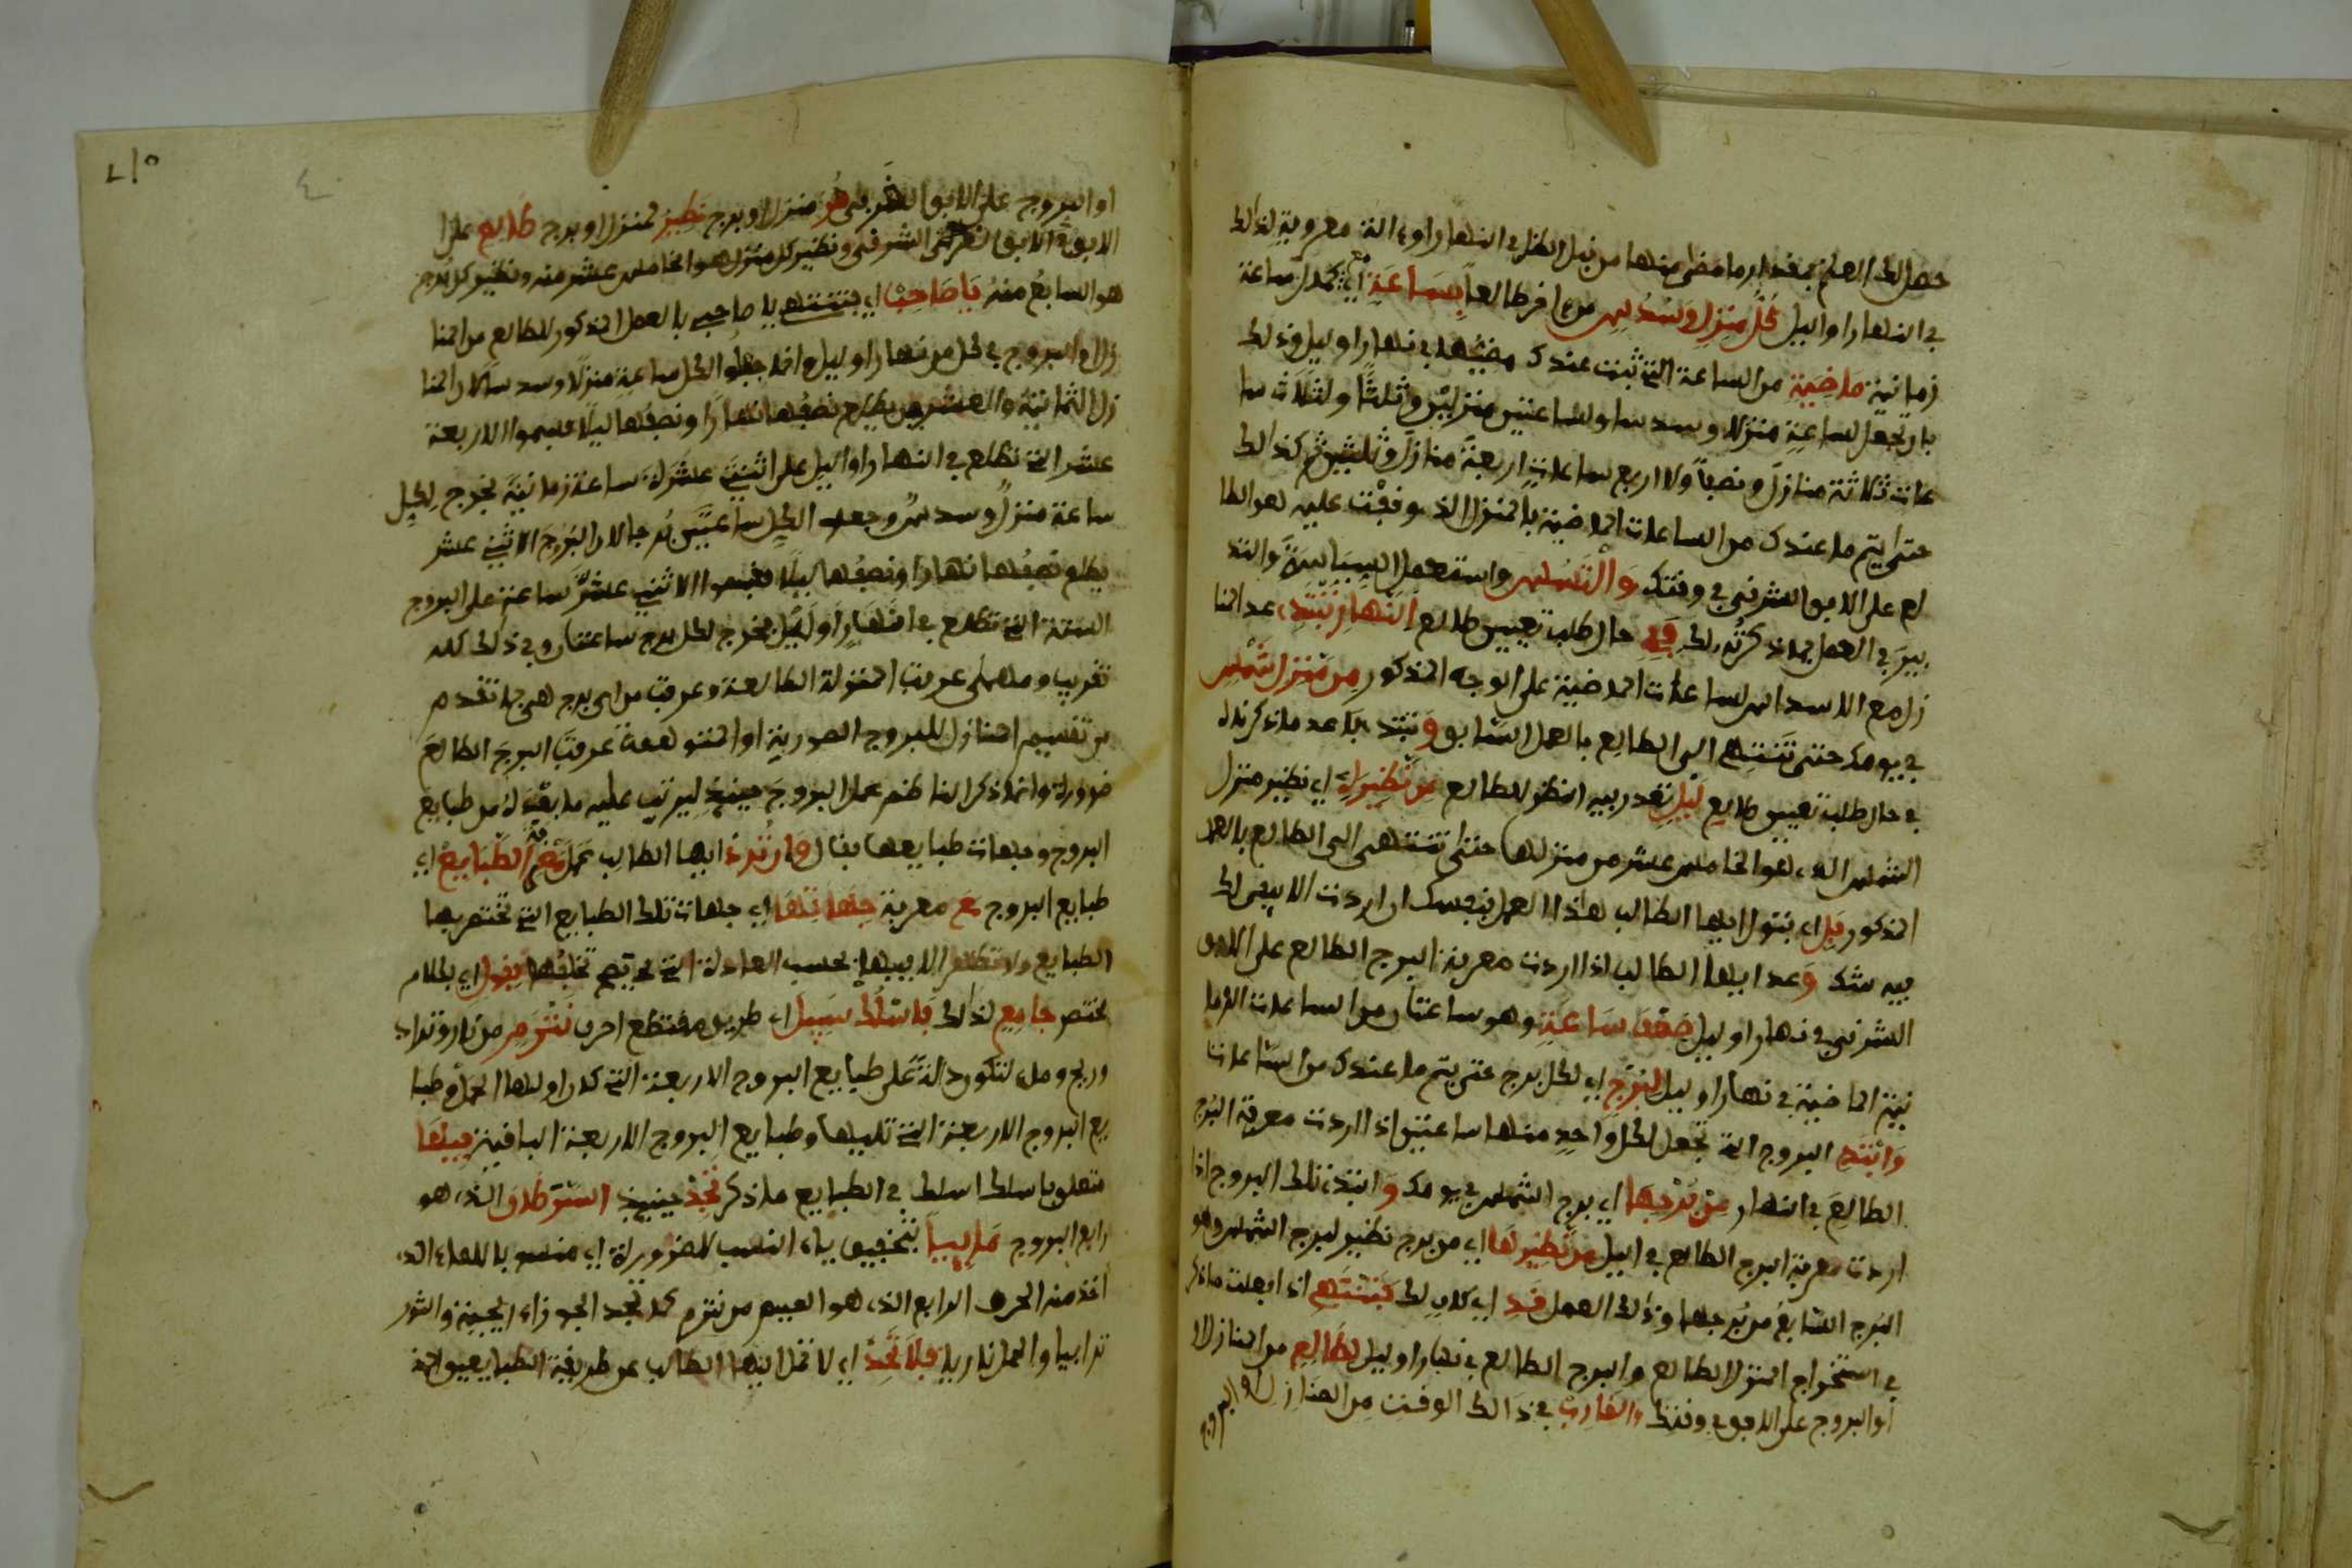 حصل لك العلم بمقدار ما مضى منها من قبل الظل في النهار او ءالة معروفة لذالك
في النهار او اليل كل منزل وسدس من اخر طالعا بساعة اي بكل ساعة
زمانية ماضية من الساعة التي ثبت عندك مضيها في نهار او ليل وذلك
بان يجعل لساعة منزلا وسدسا ولساعتين منزلين وثلثا ولثلاث سا
عات ثلاثة منازل ونصبا ولاربع ساعات اربعة منازل وثلثين ثم كذالك
حتى يتم ما عندك من الساعات الماضية بالمنزل الذي وقفت عليه هو الطا
لع على الافق الشرفي في وفتك والتمس واستعمل
في العمل بما ذكرته لك في حال طلب تعيين طالع النهار تبتدء عد المنا
زل مع الاسداس لساعات الماضية على الوجه المذكور من منزل شمس
في يومك حتى تنتهي الى الطالع بالعمل السابق وتبتدء عد ما ذكرنا
في حال طلب تعيين طالع ليل تقدر فيه المنظور للطالع من نظيره اي نظير منزل
الشمس الذي هو الخامس عشر من منزلها حتى تنتهي الى الطالع بالعمل
المذكور ايها الطالب هذا العمل بنفسك ان اردت الا يبقى لك
فيه شك وعد ايها الطالب اذا اردت معرفة البرج الطالع على الافق
الشرفي في نهار او ليل ضعف ساعة وهو ساعتان من الساعات الزما
نية الماضية في نهار او ليل لبرج اي لكل برج حتى يتم ما عندك من الساعات
وابتد البروج التي تجعل لكل واحد منها ساعتين اذا اردت معرفة البرج
الطالع في النهار من برجها اي برج الشمس في يومك وابتدء تلك البروج اذا
اردت معرفة البرج الطالع في اليل من نظيرها اي من برج نظير لبرج الشمس وهو
البرج السابع من برجها وذلك العمل قد اي كاف لك فتنتهي اذا فعلت ما ذكر
في استخراج المنزل الطالع والبرج الطالع في نهار او ليل لطالع من المنازل
او البروج على الافق في وفتك والغارب في ذالك الوفت من المنازل او البروج
او البروج على الافق الغربي هو منزل او برج نظير لمنزل او برج طالع على
الافق الشرفي ونظير كل منزل هو الخامس عشر منه ونظير كل برج
هو السابع منه يا صاحب اي فتنتهي يا صاحبي بالعمل المذكور للطالع من المنا
زل او البروج في كل من نهار او ليل وانما جعلوا لكل ساعة منزلا وسدسا لان المنا
زل الثمانية والعشرين يطلع نصفها نهارا ونصفها ليلا فقسموا الاربعة
عشر التي تطلع في النهار او اليل على اثنتي عشرة ساعة زمانية فخرج لكل
ساعة منزل وسدس وجعلوا لكل ساعتين برجا لان البروج الاثني عشر
يطلع نصفها نهارا ونصفها ليلا فقسموا الاثني عشر ساعة على البروج
الستة التي تطلع في نهار او ليل فخرج لكل برج ساعتان وفي ذلك كله
تقريب ومهما عرفت المنزلة الطالعة وعرفت من اي برج هي بما تقدم
من تقسيم المنازل للبروج عرفت البرج الطالع
ضرورة وانما ذكر الناظم عمل البروج حينئذ ليرتب عليه ما بعده من طبايع
البروج وجهات طبايعها بقال وان ترد ايها الطالب عمل معرفة الطبايع اي
طبايع البروج مع معرفة جهاتها اي جهات تلك الطبايع التي تختص بها
الطبايع بحسب العادة اي بكلام
مختصر جامع لذالك فاسلك سبيل اي طريق مفتطع احرف نترم من نار وتراب
وريح وماء لتكون دالة على طبايع البروج الاربعة التي كان اولها الحمل وطبا
يع البروج الاربعة التي تليها وطبايع البروج الاربعة البافية فيها
متعلق باسلك اسلك في الطبايع ما ذكر تجد حينئذ السرطان الذي هو
رابع البروج مائيا بتخفيف ياء النسب للضرورة اي منسوبا للماء الذي
اخذ منه الحرف الرابع الذي هو الميم من نترم كما تجد الجوزاء ريحية والثور
ترابيا والحمل ناريا فلا تحد اي لا تمل ايها الطالب عن طريقة الطبايعيين